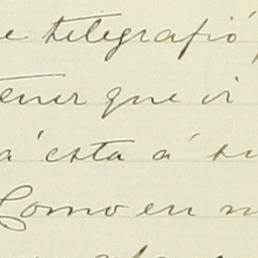 e telegrafió
tener que ir
a esta á su
Como en